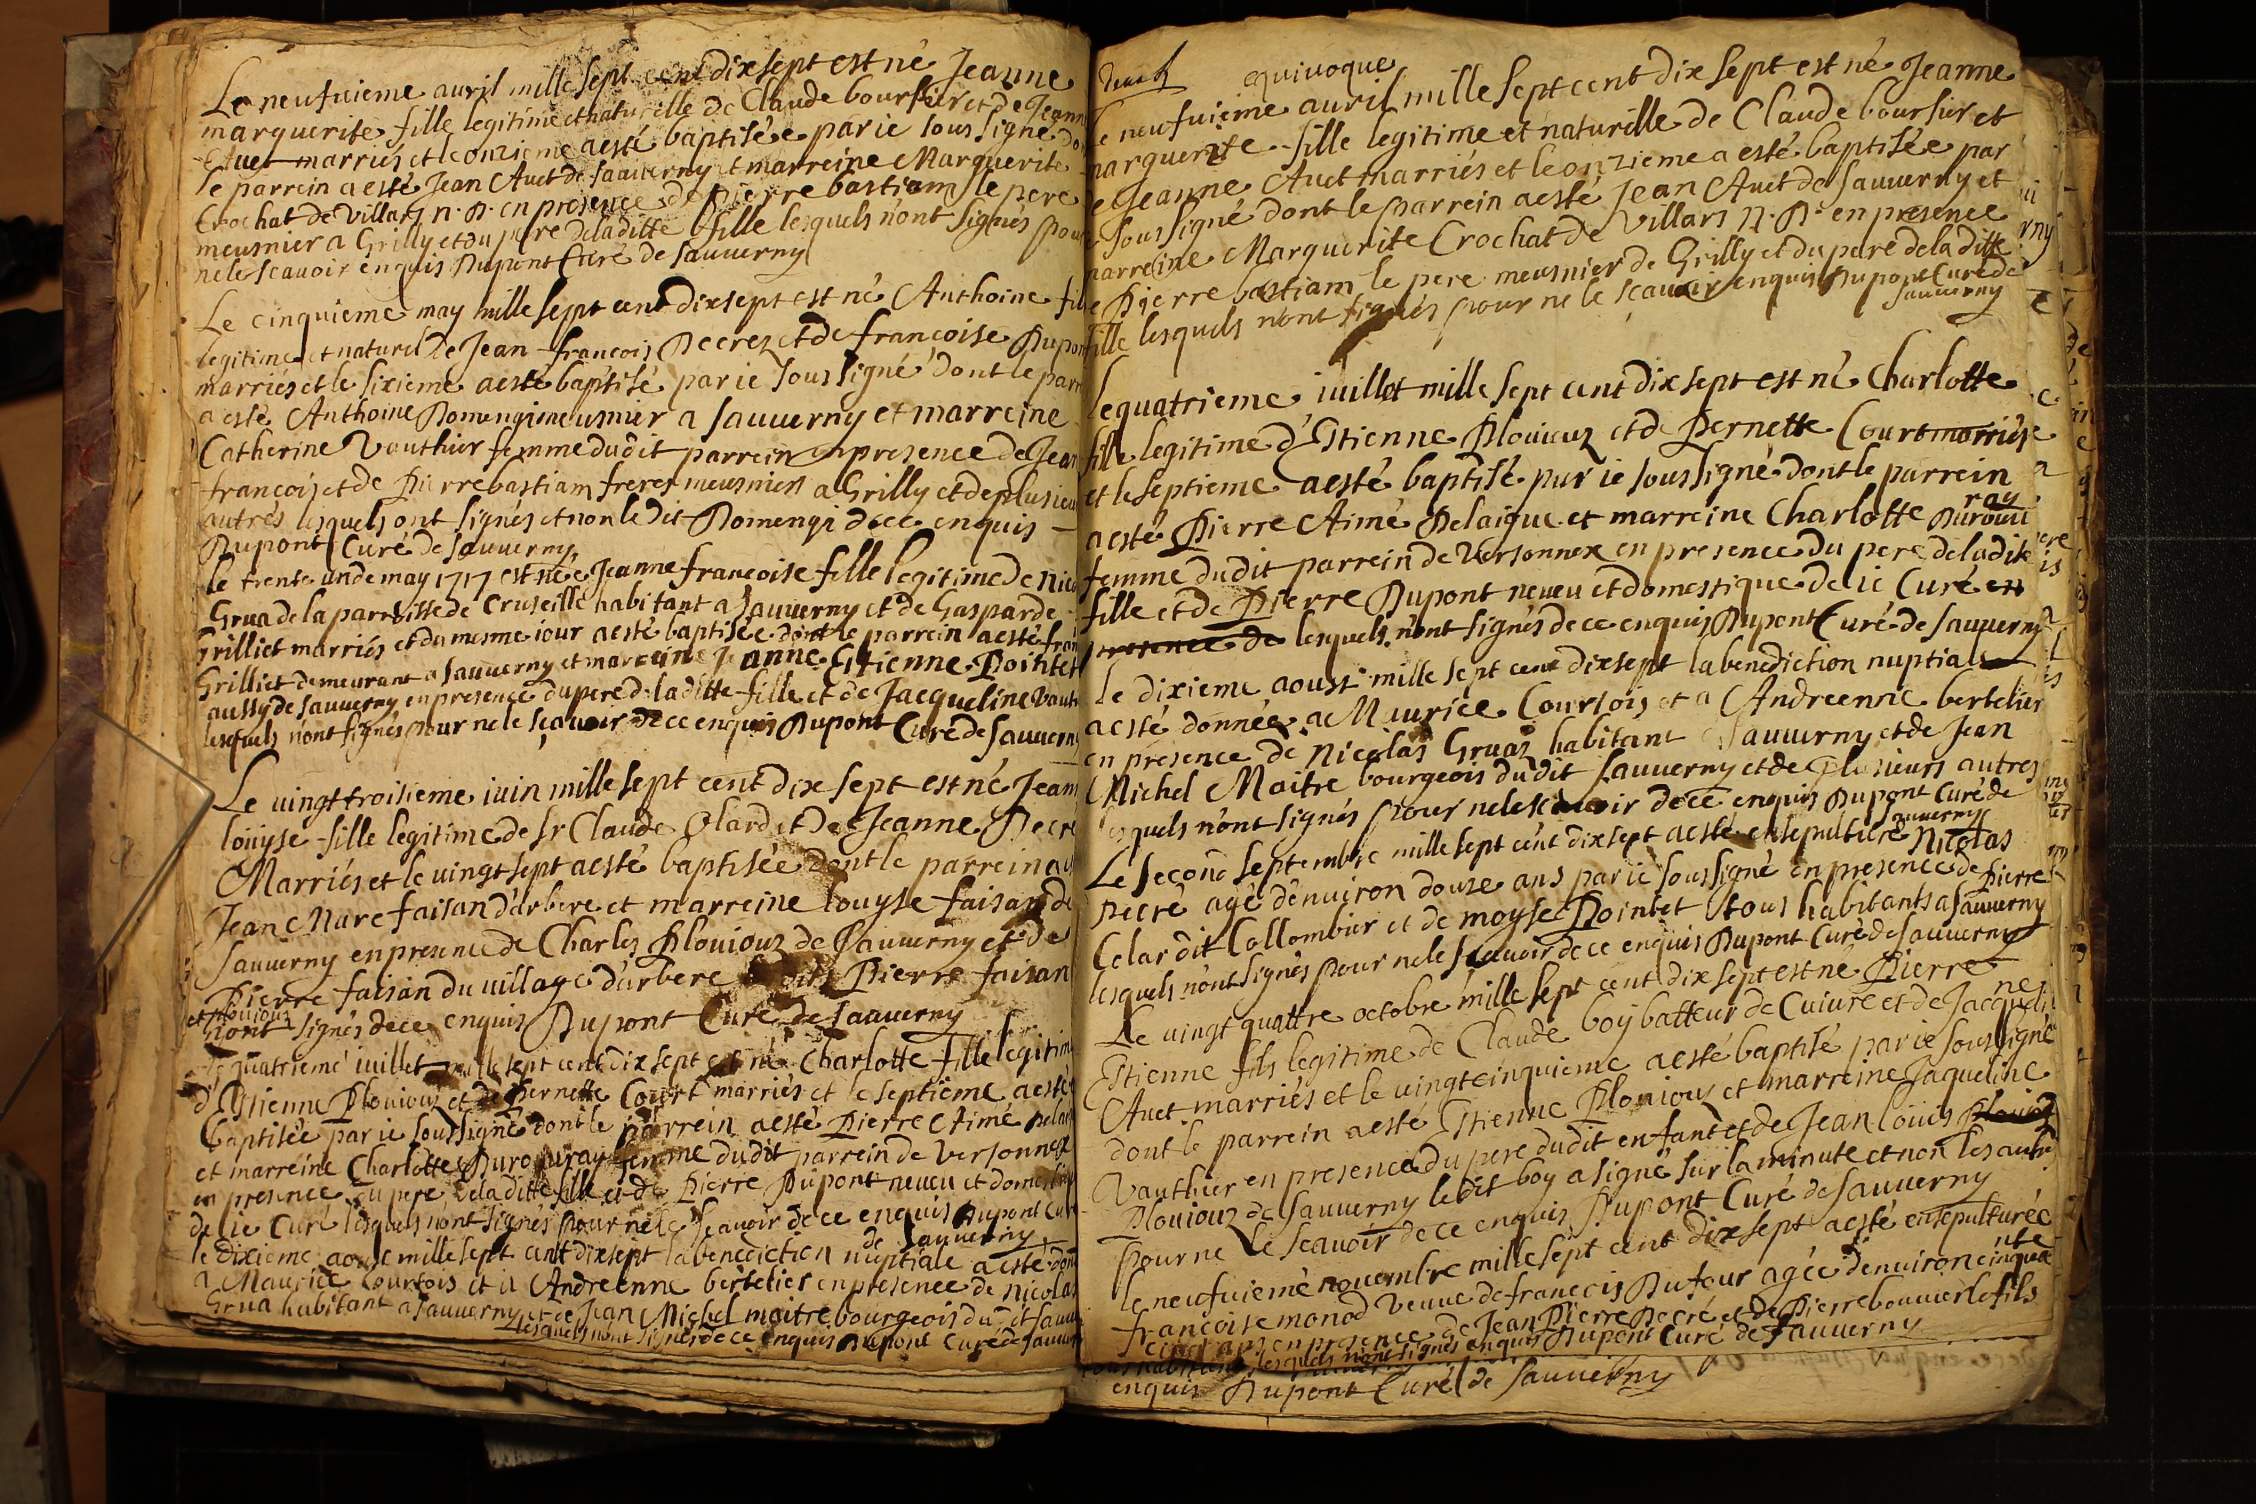 Le neufuieme auril mille sept cent dix sept est né Jeanne
marguerite fille legitime et naturelle de Claude boursier et de Jeann
Auet marriés et le onzieme a esté baptisée par ie soussigné do
le parrein a esté Jean Auet de sauuerny et marreine Marguerite
Crochat de villars n. D. en presence de Pierre bastiam le pere
meusnier a Grilly et du pere de laditte fille lesquels n'ont signés pou
ne le scauoir enquis Dupont Curé de sauuerny
Le cinquieme may mille sept cent dix sept est né Anthoine fil
legitime et naturel de Jean françois Decrez et de françoise Dupon
marriés et le sixieme a esté baptisé par ie soussigné dont le parr
a esté Anthoine Domengi meusnier a sauuerny et marreine
Catherine Vauthier femme dudit parrein en presence de Jean
françois et de Pierre bastiam freres meusniers a Grilly et de plusieu
autres lesquels ont signés et non ledit Domengi de ce enquis
Dupont Curé de sauuerny
le trente un de may 1717 est née Jeanne françoise fille legitime de Nico
Grua de la parroisse de Cruseille habitant a sauuerny et de Gasparde
Grilliet marriés et du mesme iour a esté baptisée dont le parrein a esté fran
Grilliet demeurant a sauuerny et marreine Jeanne Estienne Pointet
aussy de sauuerny en presence du pere de laditte fille et de Jacqueline Vaut
lesquels n'ont signés pour ne le sçauoir de ce enquis Dupont Curé de sauuerny
Le uingt troisieme iuin mille sept cent dix sept est né Jeann
louyse fille legitime de sr Claude Olard et de Jeanne Decre
Marriés et le uingt sept a esté baptisée dont le parrein a
Jean Marc faisan d'arbere et marreine louyse faisan de
sauuerny en presence de Charles Plouiouz de Sauuerny et de
Pierre faisan du uillage d'arbere Pierre faisan
et plouiouz
n'ont signés de ce enquis Dupont Curé de sauuerny
quatrieme iuillet mille sept cent dix sept est né Charlotte fille legitim
d'Estienne Plouiouz et de Pernette Court marriés et le septieme a esté
baptisée par ie soussigné dont le parrein a esté Pierre Aimé Delai
et marreine Charlotte Duro femme dudit parrein de Versonnex
en presence du pere de laditte fille et de Pierre Dupont neueu et domestiq
de ie Curé lesquels n'ont signés pour ne le scauoir de ce enquis Dupont Curé
de sauuerny
le dixieme aoust mille sept cent dix sept la benediction nuptiale a esté don
a Maurice Courtois et a Andreenne bertelier en presence de Nicolas
Grua habitant a sauuerny et de Jean Michel maitre bourgeois dudit sauu
lesquels n'ont signés de ce enquis Dupont Curé de sauuer
equiuoque
le neufuieme auril mille sept cent dix sept est né Jeanne
marguerite fille legitime et naturelle de Claude boursier et
de Jeanne Auet marriés et le onzieme a esté baptisée par
ie soussigné dont le parrein a esté Jean Auet de sauuerny et
marreine Marguerite Crochat de villars n. D. en presence
de Pierre bastiam le pere meusnier de Grilly et du pere de laditte
fille lesquels n'ont signés pour ne le scauoir enquis Dupont Curé de
sauuerny
le quatrieme iuillet mille sept cent dix sept est né Charlotte
fille legitime d'Estienne Plouiouz et de Pernette Court marriés
et le septieme a esté baptisé par ie soussigné dont le parrein
a esté Pierre Aimé Delaigue et marreine Charlotte Durouu
ray
femme dudit parrein de Versonnex en presence du pere de ladite
fille et de Pierre Dupont neueu et domestique de ie Curé en
presence de lesquels n'ont signés de ce enquis Dupont Curé de sauuerny
Le dixieme aoust mille sept cent dix sept la benediction nuptiale
a esté donnée a Maurice Courtois et a Andreenne bertelier
en presence de Nicolas Gruaz habitant a sauuerny et de Jean
Michel Maitre bourgeois dudit sauuerny et de plusieurs autres
lesquels n'ont signés pour ne le scauoir de ce enquis Dupont Curé de
sauuerny
Le second septembre mille sept cent dix sept a esté ensepulturé Nicolas
Decré agé d'enuiron douze ans par ie soussigné en presence de Pierre
Celar dit Collombier et de moyse Pointet tous habitants a sauuerny
lesquels n'ont signés pour ne le scauoir de ce enquis Dupont Curé de sauuerny
Le uingt quattre octobre mille sept cent dix sept est né Pierre
Estienne fils legitime de Claude boy batteur de Cuiure et de Jacqueli
ne
Auet marriés et le uingt cinquieme a esté baptisé par ie soussigné
dont le parrein a esté Estienne Plouiouz et marreine Jaqueline
Vauthier en presence du pere dudit enfant et de Jean louis plouioz
Plouiouz de sauuerny ledit boy a signé sur la minute et non les autr
pour ne le scauoir de ce enquis Dupont Curé de sauuerny
le neufuieme nouembre mille sept cent dix sept a esté ensepulturée
françoise monod veuue de françois Dufour agée d'enuiron cinqua
nte
cinq ans en presence de Jean Pierre Decré et de Pierre bouuier le fils
lesquels n'ont signés enquis Dupont Curé de sauuerny
enquis Dupont Curé de sauuerny